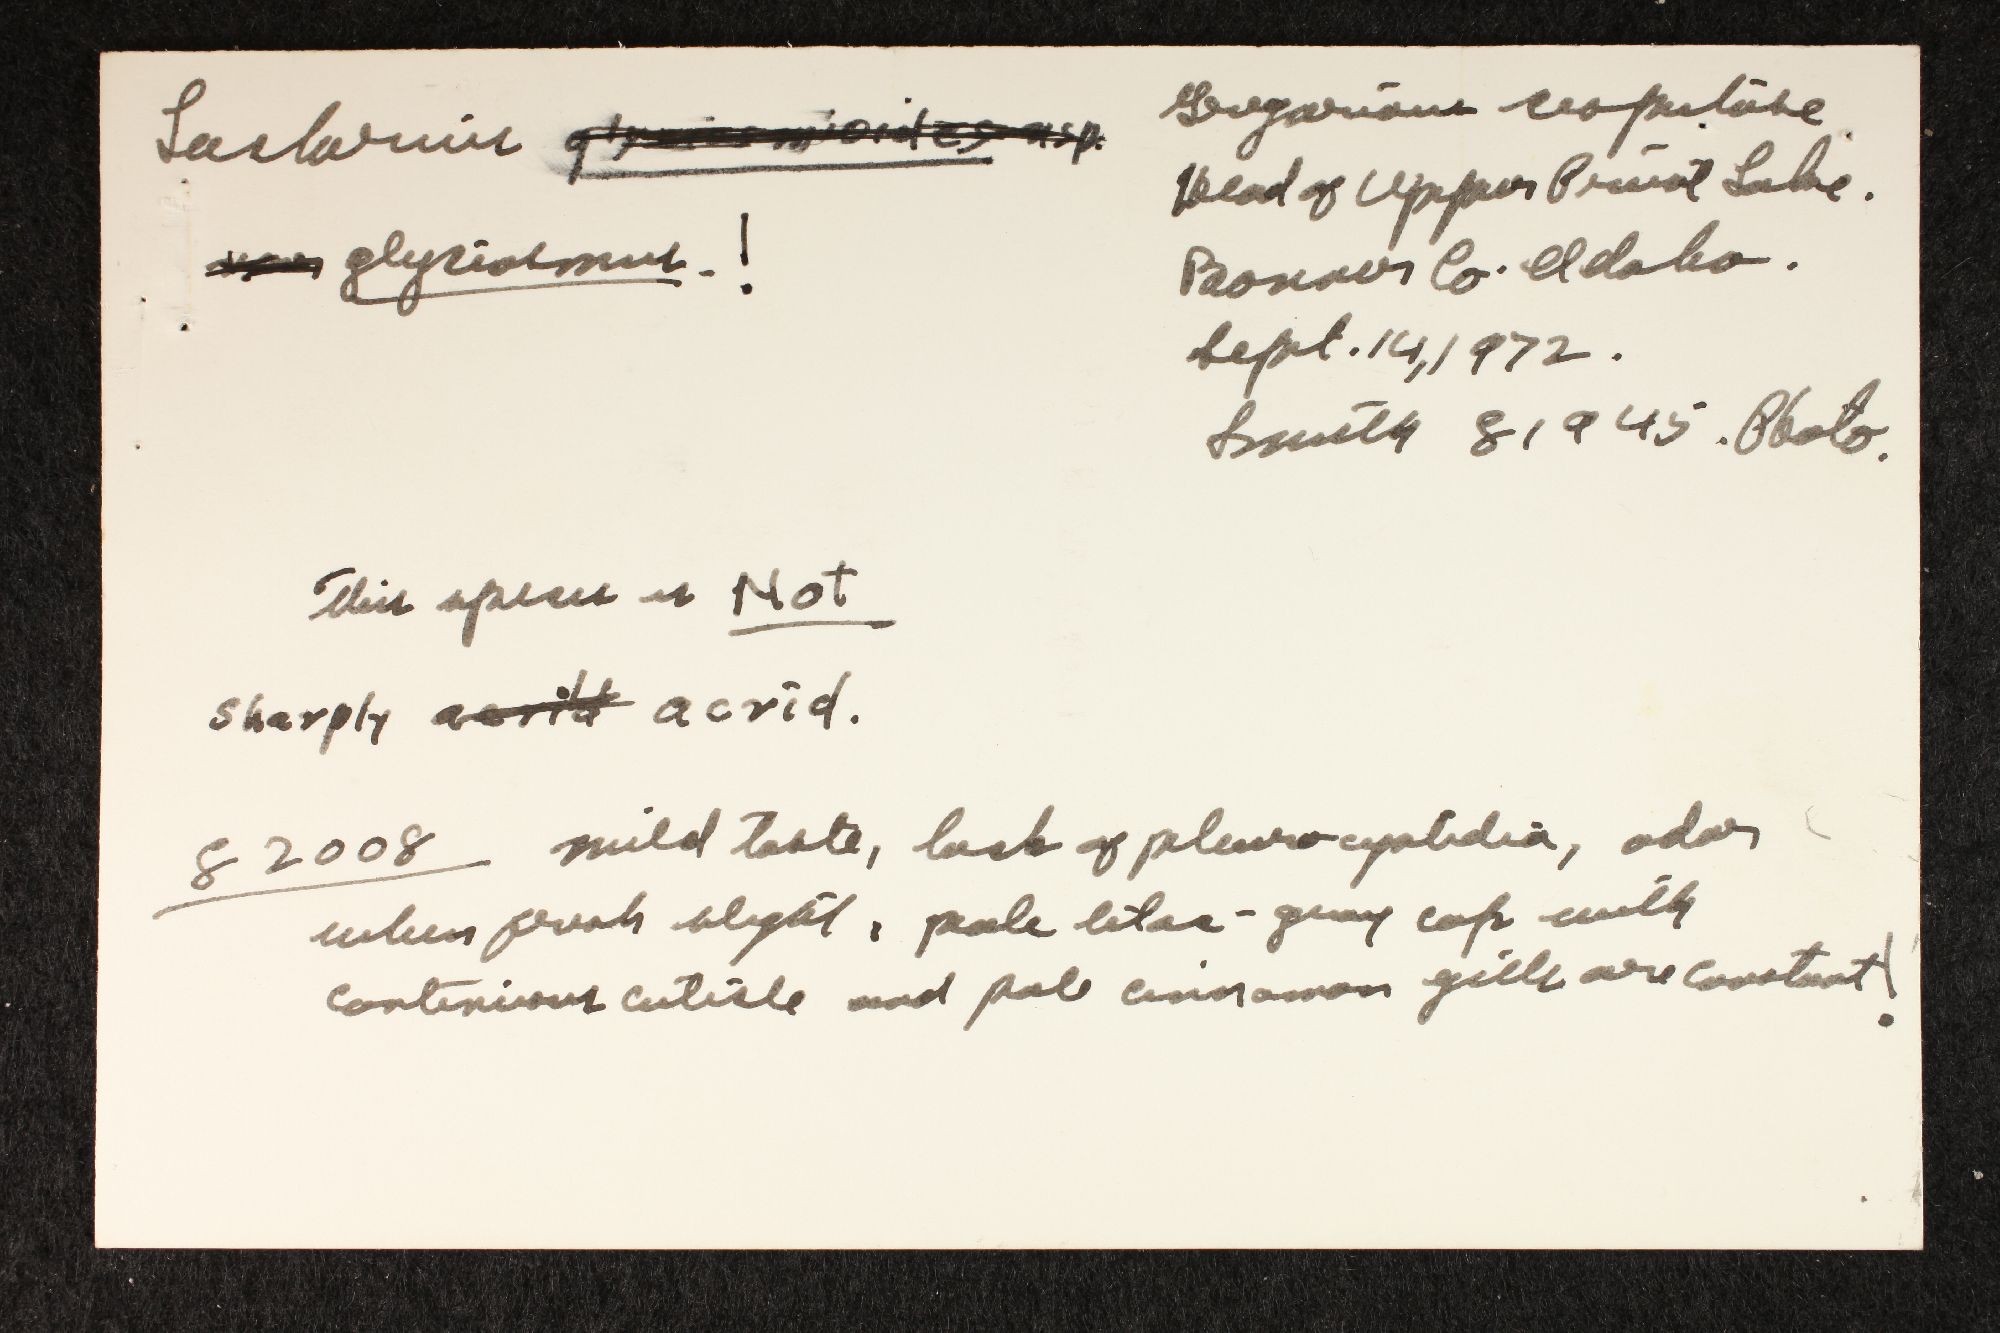 Lactarius glyciosmioides nsp.
var glyciosmus.!
Gregarious cespitose
Head of Upper Priest Lake.
Bonner Co. Idaho.
Sept. 14, 1972.
Smith 81945. Photo.
This species is Not
sharply acrid.
82008 mild taste, lack of pleurocystidia, odor
when fresh slight, pale lilac-gray cap with
continuous cuticle and pale cinnamon gills are constant!